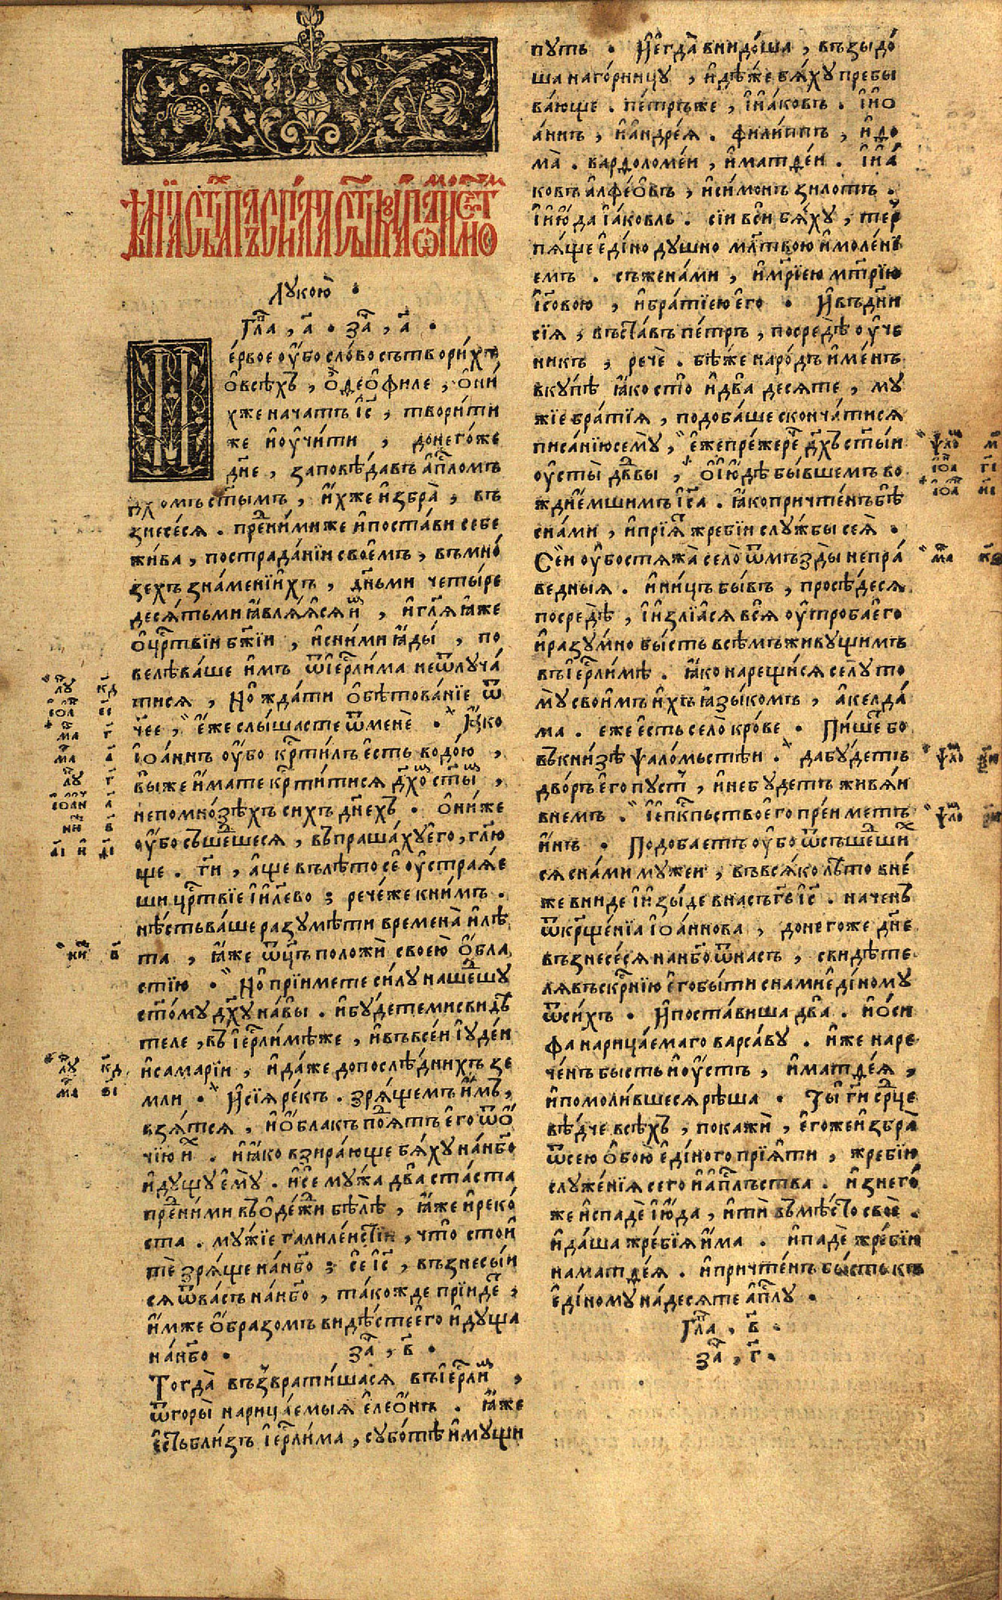 Лукою̀ .
Гла́ , а҃ . За́ , а҃ .
Пе́рвое ᲂу҆́бо сло́во сътвори́хъ
ѡ҆ всѣ́хъ , ѽ҆ део́филе , ѡ҆ ни́
хже нача́тъ і҆с҃ , твори́ти
же и҆ ᲂу҆чи́ти , донего́же
дн҃е , заповѣ́давъ а҆пⷭ҇ломъ
дх҃омъ ст҃ымъ , и҆́хже и҆збра̀ , въ
знесе́ся . пред̾ни́миже и҆ поста́ви себе
жи́ва , пострада́нїи свое́мъ , въ мно́
зехъ зна́менїихъ , дн҃ьми четы́ре
деся́тьми ꙗ҆вля́ѧся и҆́мъ , и҆ гл҃ѧ ꙗ҆́же
ѡ҆ црⷭ҇твїи бж҃їи , и҆ сни́ми ꙗ҆ды́ , по
велѣва́ше и҆мъ ѿ і҆ерⷭ҇ли́ма не ѿлуча́
тися , но̀ жда́ти ѡ҆бѣтова́нїе ѿ
ч҃ее , е҆́же слы́шасте ѿ менѐ . Ꙗ҆́ко
і҆ѡа́ннъ ᲂу҆́бо крⷭ҇ти́лъ е҆́сть водо́ю ,
вы́же и҆́мате крⷭ҇ти́тися дх҃омъ ст҃ымъ ,
не помно́зѣхъ си́хъ дн҃ехъ . ѻ҆ни́же
ᲂу҆́бо съше́дшеся , въпраша́ху е҆го̀ , гл҃ю
ще . гд҃и , а҆́ще въ лѣ́то сѐ ᲂу҆страѧ́е
ши црⷭ҇твїе і҆и҃лево ; рече́же к ни́мъ .
нѣ́сть ва́ше разумѣ́ти времена̀ и҆ лѣ
та , ꙗ҆́же ѻ҆ц҃ъ положѝ свое́ю ѡ҆́бла
стїю . Но̀ прїи́мете си́лу наше́дшу
ст҃о́му дх҃у на вы̀ . и҆ бу́дете ми свидѣ́
теле , въ і҆ерⷭ҇ли́мѣже , и҆ въ все́и і҆уде́и
и҆ самарі́и , и҆ да́же до послѣ́днихъ зе
мли . И҆ сїѧ̀ ре́къ . зря́щемъ и҆́мъ ,
взя́тся , и҆ ѡ҆́блакъ под̾я́тъ е҆го̀ ѿ ѻ҆́
чїю и҆́хъ . и҆ ꙗ҆́ко взира́юще бя́ху на́ нб҃о
и҆ду́щу е҆мꙋ̀ . и҆ се́ му́жа два̀ ста́ста
пред̾ ни́ми въ ѻ҆де́жи бѣ́лѣ , ꙗ҆́же и҆ реко́
ста . му́жїе галиле́йстїи , что̀ стои́
тѐ зря́ще на́ нб҃о ; се́й і҆с҃ , възнесы́й
ся ѿ ва́съ на́ нб҃о , та́кожде прїи́де ,
и҆́мже ѡ҆́бразомъ ви́дѣсте е҆го̀ и҆ду́ща
на́ нб҃о . За́ , в҃ .
Тогда̀ възврати́шася въ і҆ерⷭ҇ли́мъ ,
ѿ горы̀ нарица́емыя е҆леѡ́нъ . ꙗ҆́же
е҆́сть бли́зъ і҆ерⷭ҇ли́ма , субо́тѣ и҆му́щи
пу́ть . И҆ є҆гда̀ внидо́ша , възыдо́
ша на го́рницу , и҆дѣ́же бя́ху пребы
ва́юще . пе́тръже , і҆ и҆а́ковъ . і҆ і҆ѡ
а́ннъ , и҆ а҆ндре́я . фили́ппъ , и҆ ѳо
ма̀ . варѳоломе́и , и҆ матѳе́и . і҆ и҆а́
ковъ а҆лфе́ѡвъ , и҆ си́монъ зило́тъ .
і҆ і҆ю́да і҆а́ковль . сїи всѝ бя́ху , терⸯ
пя́ще е҆ди́но ду́шно мл҃твою и҆ моле́нї
емъ . съ жена́ми , и҆ мр҃і́ею мт҃рїю
і҆с҃овою , и҆ бра́тїею е҆го̀ . И҆ въ дн҃и
сїѧ , въста́въ пе́тръ , посредѣ̀ ᲂу҆че
никъ , речѐ . бѣ́же наро́дъ и҆ме́нъ
вку́пѣ ꙗ҆ко сто̀ и҆ два̀ десяте , му
жїе бра́тїя , подоба́ше сконча́тися
писа́нїю сему́ , е҆́же пре́жерече́ дх҃ъ ст҃ы́и
ᲂу҆сты̀ дв҃дѡвы , ѡ҆ і҆ю́дѣ бы́вшемъ во
жди е҆́мшимъ і҆с҃а . ꙗ҆ко причте́нъ бѣ
сна́ми , и҆ прїя́тъ жре́бїи слу́жбы сея̀ .
Се́й ᲂу҆́бо стяжа̀ село̀ ѿ мъзды̀ непра́
ведныя . и҆ ни́цъ бы́въ , просѣ́деся
посредѣ̀ , і҆ излїа́ся вся ᲂу҆тро́ба е҆го
и҆ разу́мно бы́сть всѣ́мъ живу́щимъ
въ і҆ерⷭ҇ли́мѣ . ꙗ҆́ко нарещи́ся селу̀ то
му̀ свои́мъ и҆́хъ ꙗ҆зы́комъ , а҆келда́
ма . еже е҆́сть село̀ кро́ве . Пи́шет бо
въ кни́зѣ ѱало́мьстѣи . да бу́детъ
дво́ръ е҆го̀ пу́стъ , и҆ не бу́детъ живя́и
вне́мъ . і҆ е҆пкⷭ҇пьство е҆го̀ прїи́метъ
и҆́нъ . Подоба́етъ ᲂу҆́бо ѿ съше́дшихъ
ся сна́ми муже́и , въ вся́ко лѣ́то вне́
же вни́де і҆ изы́де в на́съ гдⷭ҇ь і҆с҃ . наче́нъ
ѿ крⷭ҇ще́нїя і҆ѡа́ннова , донего́же дн҃е
възнесе́ся на́ нб҃о ѿ на́съ , свидѣ́те
ля въскрⷭ҇нїю е҆го̀ бы́ти сна́ми е҆ди́ному
ѿ си́хъ . И҆ поста́виша два̀ . и҆ ѡ҆си
фа нарица́емаго варса́ву . и҆же наре
че́нъ бы́сть и҆ ᲂу҆́стъ , и҆ матѳе́я ,
и҆ помоли́вшеся рѣ́ша . Ты̀ гд҃и срⷣце
вѣ́дче всѣ́хъ , покажѝ , е҆го́же и҆збра̀
ѿ сею̀ ѡ҆бою̀ е҆ди́ного прїя́ти , жре́бїи
служе́нїя сего̀ и҆ а҆пⷭ҇льства . и҆з него́
же и҆спаде́ і҆ю́да , и҆тѝ въ мѣ́сто своѐ .
и҆ да́ша жре́бїя и҆́ма . и҆ падѐ жре́бїи
на матѳе́я . и҆ причте́нъ бы́сть къ
е҆ди́ному на́десяте а҆пⷭ҇лу .
Гла́ , в҃ .
За́ , г҃ .